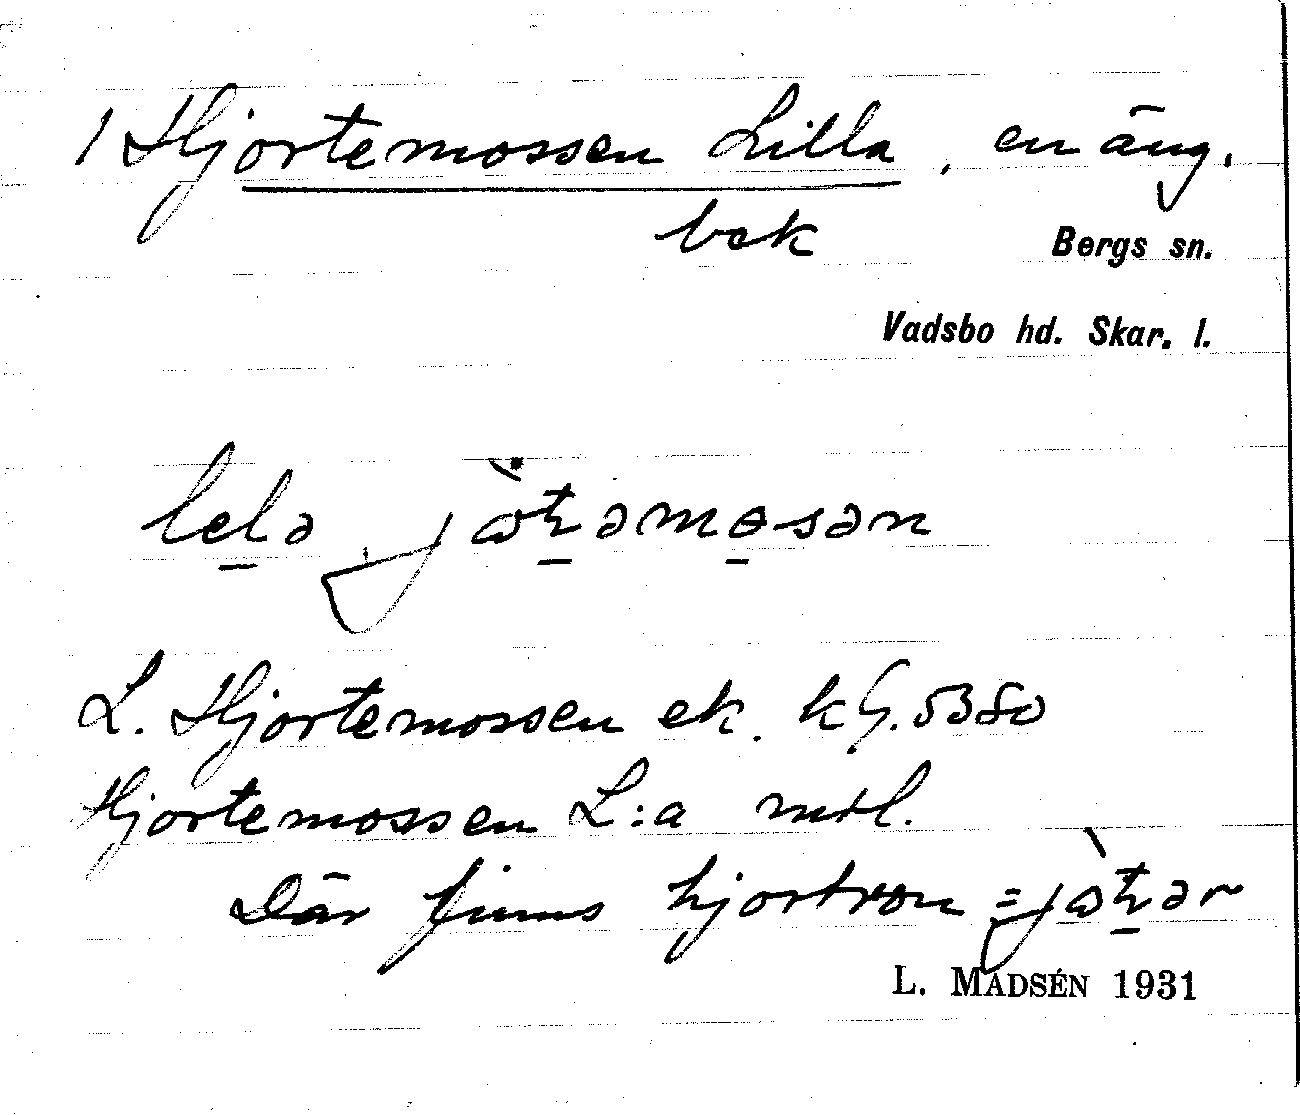 1 Hjortemossen Lilla, en äng.
bok
Bergs sn.
Vadsbo hd. Skar. l.
lelə jòtəmosən
L. Hjortemossen ek. kG. 5380
Hjortemossen L:a mtl.
Där finns hjortron = jòtər
L. MADSÉN 1931